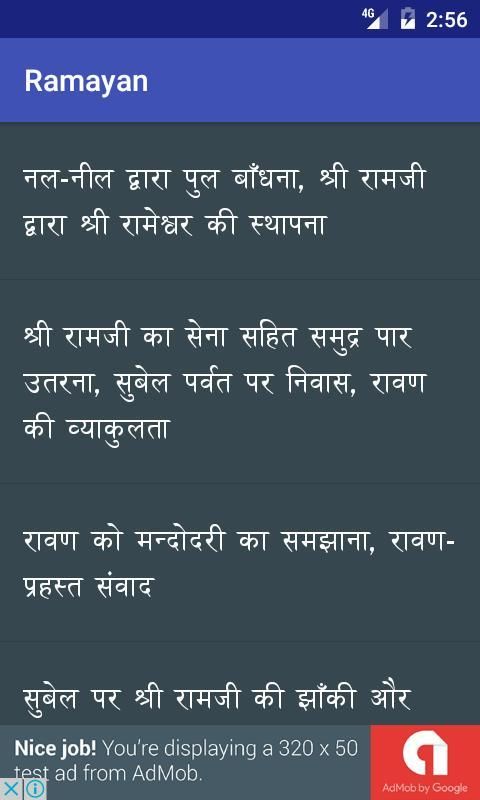 4G 2:56
Ramayan
नल-नील द्वारा पुल बाँधना, श्री रामजी
द्वारा श्री रामेश्वर की स्थापना
श्री रामजी का सेना सहित समुद्र पार
उतरना, सुबेल पर्वत पर निवास, रावण
की व्याकुलता
रावण को मन्दोदरी का समझाना, रावण-
प्रहस्त संवाद
सुबेल पर श्री रामजी की झाँकी और
Nice job! You're displaying a 320 x 50
test ad from AdMob.
AdMob by Google